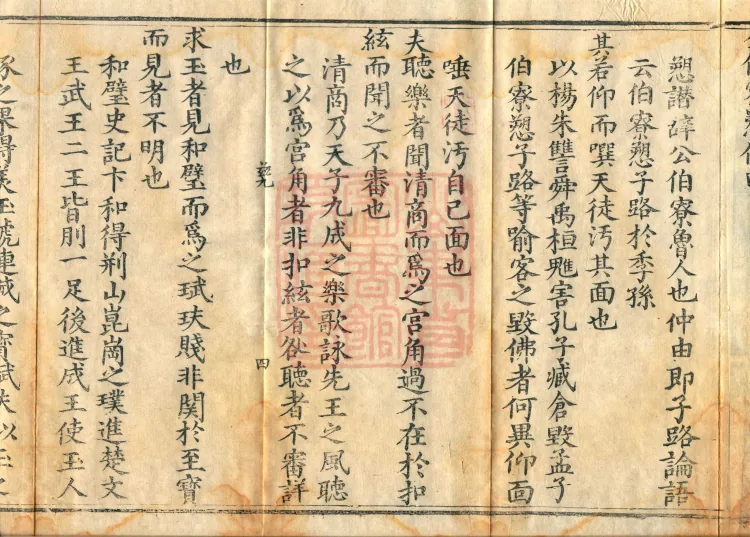 愬譖辭公伯寮魯人也仲由即子路論語
云伯寮愬子路於季孫
其若仰而噀天徒汚其面也
以楊朱讐舜禹桓魋害孔子臧倉毀孟子
伯寮愬子路等喻客之毀佛者何異仰面
唾天徒汚自己面也
夫聽樂者聞清商而爲之宮角過不在於扣
絃而聞之不審也
清商乃天子九成之樂歌詠先王之風聽
之以爲宮角者非扣絃者咎聽者不審詳
也
四
求玉者見和璧而爲之珷玞賤非関於至寶
而見者不明也
和璧史記卞和得荆山崑崗之璞進楚文
王武王二王皆刖一足後進成王使玉人
琢之果得美玉號連城之寶珷玞以玉之